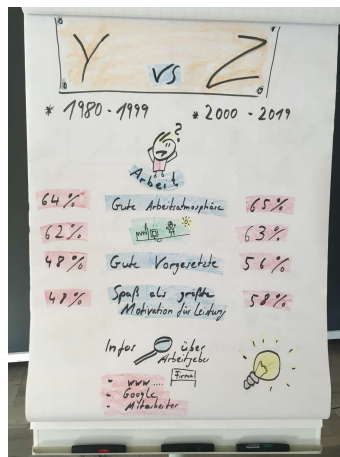 Y vs Z
* 1980 - 1999 * 2000 - 2019
?
Arbeit
64% Gute Arbeitsatmosphäre 65%
62% 63%
48% Gute Vorgesetzte 56%
48% Spaß als größte 58%
Motivation für Leistung
Infos über
Arbeitgeber
Firma
- www....
- Google
- Mitarbeiter